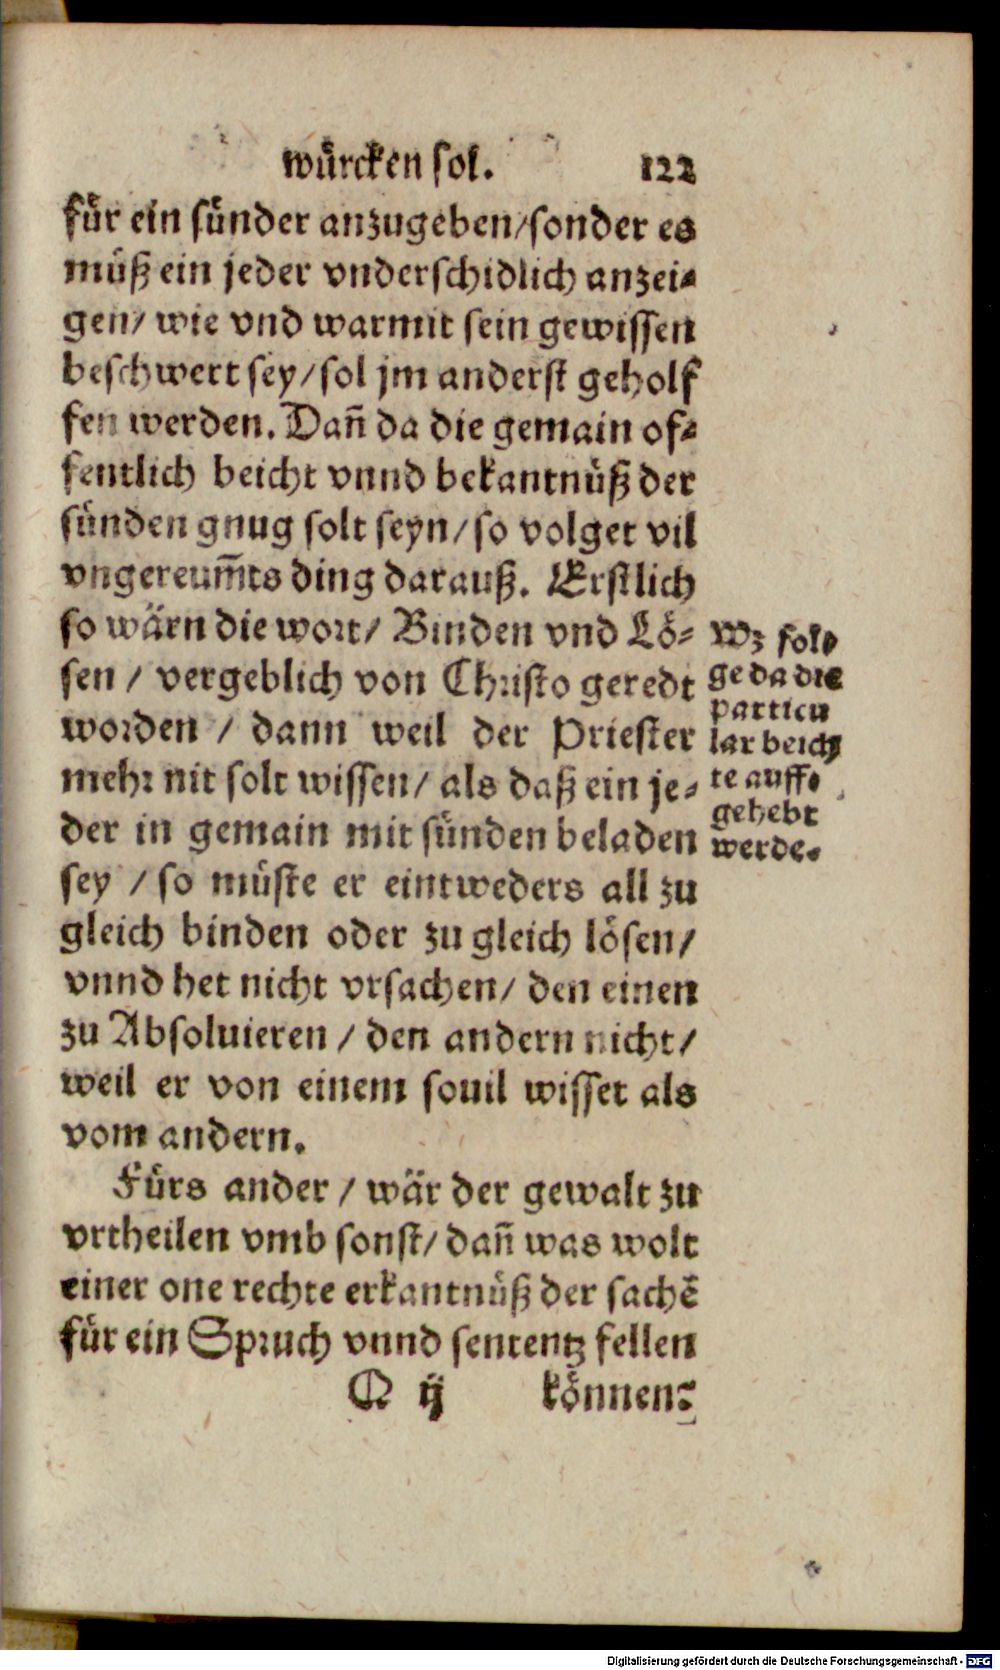 würcken sol. 122
für ein sünder anzugeben/sonder es
müß ein jeder vnderschidlich anzei-
gen/ wie vnd warmit sein gewissen
beschwert sey/sol jm anderst geholf
fen werden. Dañ da die gemain of-
fentlich beicht vnnd bekantnüß der
sünden gnug solt seyn/so volget vil
vngereum̃ts ding darauß. Erstlich
so wärn die wort/ Binden vnd Lö-
sen / vergeblich von Christo geredt
worden / dann weil der Priester
mehr nit solt wissen/ als daß ein je-
der in gemain mit sünden beladen
sey / so müste er eintweders all zu
gleich binden oder zu gleich lösen/
vnnd het nicht vrsachen/ den einen
zu Absoluieren / den andern nicht/
weil er von einem souil wisset als
vom andern.
Wz fol-
ge da die
particu
lar beich
te auff-
gehebt
werde.
Fürs ander / wär der gewalt zu
vrtheilen vmb sonst/ dañ was wolt
einer one rechte erkantnüß der sachẽ
für ein Spruch vnnd sententz fellen
Q ij können:
Digitalisierung gefördert durch die Deutsche Forschungsgemeinschaft - DFG